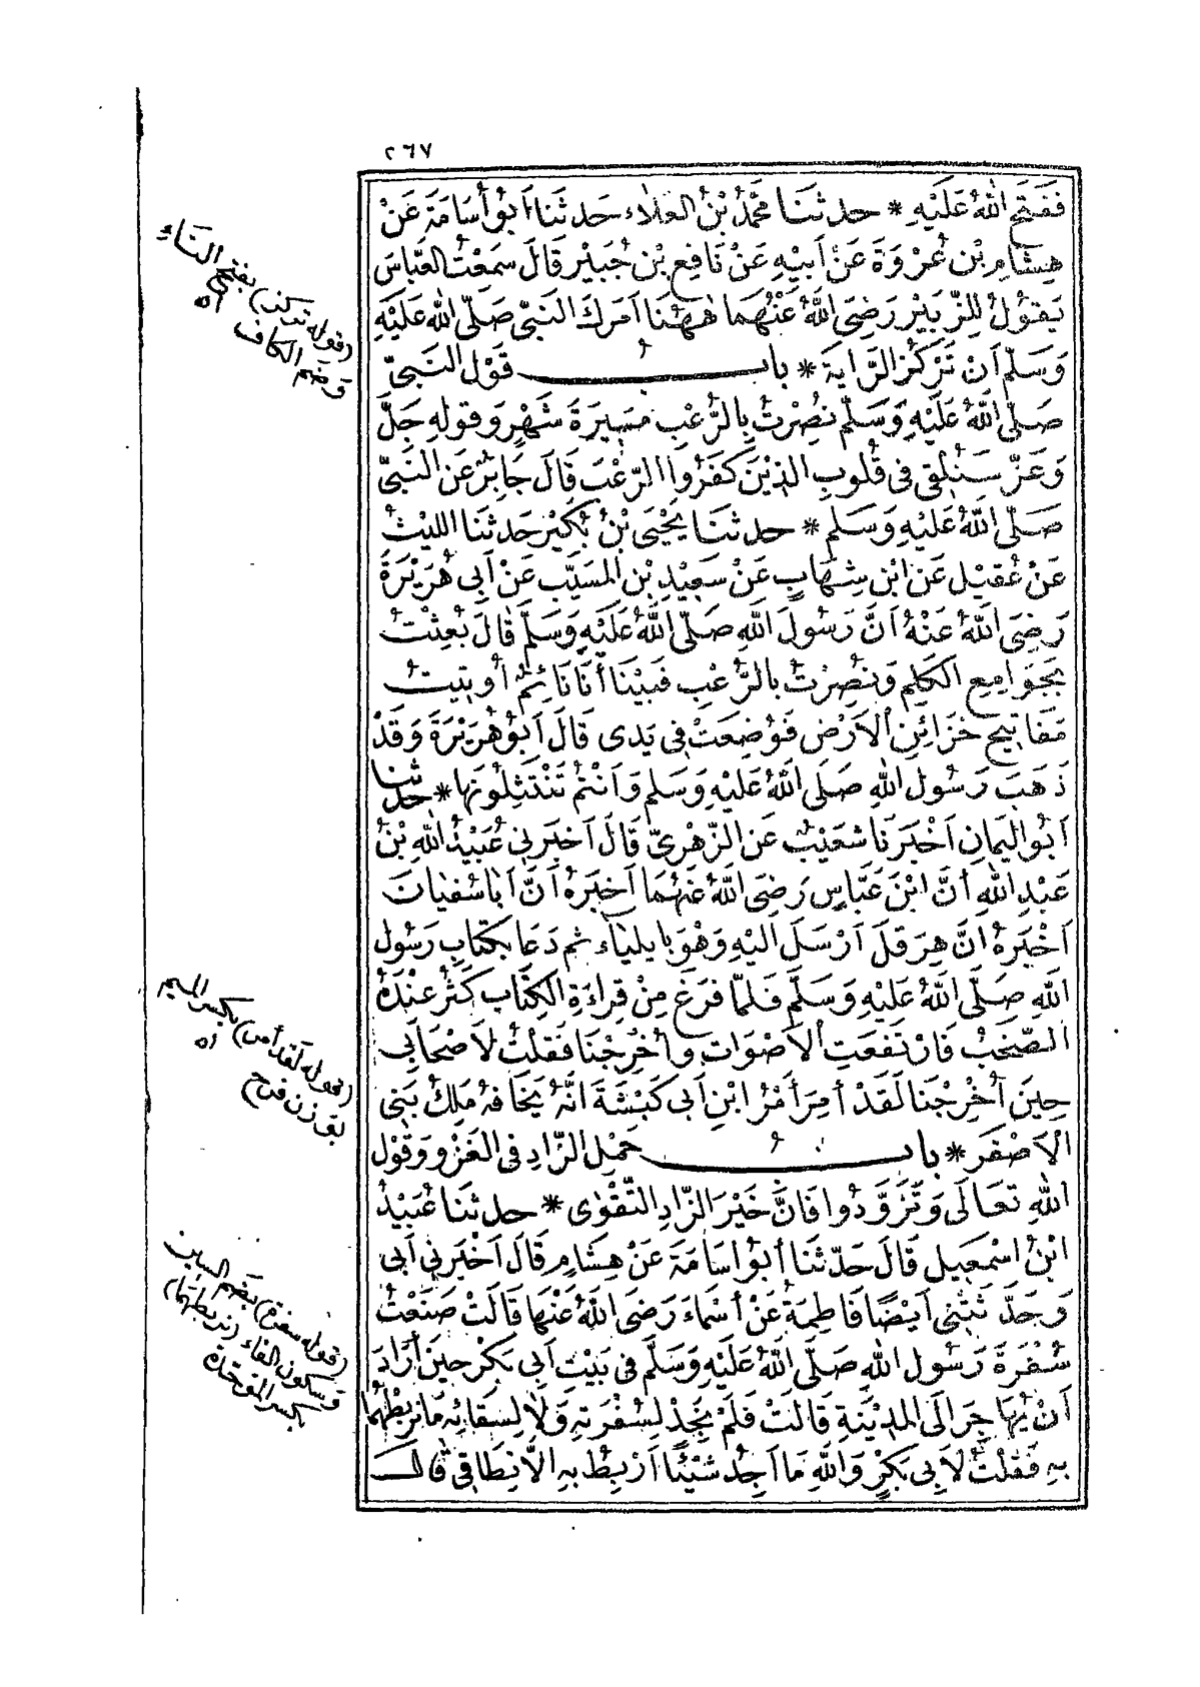 ٢٦٧
فَفَتَحَ اللهُ عَلَيْهِ * حدثنا مُحَمَّدُ بْنُ العَلَاء حَدثنَا أَبُو أُسَامَةَ عَنْ
هِشَامِ بْنِ عُرْوَةَ عَنْ أَبِيْهِ عَنْ نَافِعِ بْنِ جُبَيْرٍ قَالَ سَمِعْتُ العَبَّاسَ
يَقُوْلُ لِلزُّبَيْرِ رَضِىَ اللّٰهُ عَنْهُمَا هٰهُنَا اَمَرَكَ النَّبِىّ صَلّى الله عَلَيْهِ
وَسَلّم اَنْ تَرْكُزَ الرَّايَةَ * بابُ قَوْل النَّبِىّ
صَلّى اللّٰهُ عَلَيْهِ وَسَلّم نُصِرْتُ بِالرُّعْبِ مَسِيْرَةَ شَهْرٍ وَقولِهِ جَلَّ
وَعَزَّ سَنُلْقِى فى قُلُوبِ الذِيْنَ كَفَرُوا الرّعْبَ قَالَ جَابِرٌ عَن النَّبِىّ
صَلّى اللّٰهُ عَلَيْهِ وَسَلم * حدثنَا يَحْيَى بْنُ بُكَيْر حَدثنَا الليْثُ
عَنْ عُقَيْل عَن ابْنِ شِهَابٍ عَنْ سَعِيْدِ بْنِ المسَيَّب عَنْ اَبِى هُرَيْرَةَ
رَضِىَ اللّٰهُ عَنْهُ اَنَّ رَسُولَ اللّٰهِ صَلّى اللّٰهُ عَلَيْهِ وَسَلّم قَالَ بُعِثْتُ
بِجَوَامِعِ الكَلِمِ وَنُصِرْتُ بالرُّعْبِ فَبَيْنَا أَنَا نَائِمٌ أُوتِيتُ
مَفَاتِيحِ خَزَائِنِ الْاَرْضِ فَوُضِعَتْ فى يَدِى قَالَ اَبُوْ هُرَيْرَةَ وَقَدْ
ذَهَبَ رَسُول اللهِ صَلّى اللّٰهُ عَلَيْهِ وَسَلم وَاَنْتُمْ تَنْتَثِلُوْنَهَا * حدثنا
اَبُو اليَمانِ اَخْبَرَنَا شعَيْبٌ عَن الزّهْرِىّ قَالَ اَخبَرَنِى عُبَيْدُ اللهِ بْنُ
عَبْدِ اللهِ أَنَّ ابْنَ عَبَّاسٍ رَضِىَ اللّٰهُ عَنهُمَا اَخبَرَهُ اَنَّ اَبَا سُفيَانَ
اَخْبَرَهُ انَّ هِرَقلَ اَرْسَلَ اليْهِ وَهْوَ بايلياء ثم دَعَا بكتَابِ رَسُول
اللّٰهِ صَلّى اللّٰهُ عَلَيْهِ وَسَلَّم فَلمّا فرَغَ مِنْ قِرَاءَةِ الكِتَاب كَثُرَ عِنْدَهُ
الصّخَبُ فَارْتَفَعَتِ الْاَصْوَات وأُخْرِجْنَا فَقلْتُ لاَصْحَابِى
حِينَ أُخْرِجْنَا لَقَدْ أَمِرَ أَمْرُ ابْنِ اَبِى كَبْشَةَ اَنَّهُ يَخَافهُ مَلِكُ بَنى
الْاَصْفَر * بابُ حَمْل الزّادِ فى الغَزْو وَقَوْل
اللهِ تعَالَى وَتَزَوَّدُوا فَانَّ خَيْرَ الزّادِ التَّقْوٰى * حدثنَا عُبَيْدُ
ابْنُ اسْمعِيل قَالَ حَدّثنَا أبُو اُسَامَةَ عَنْ هِشَامٍ قَالَ اَخْبَرنِى اَبى
وَحَدَّثَتْنِى اَيْضًا فَاطِمَةُ عَنْ أَسْمَاءَ رَضىَ اللّٰهُ عَنْهَا قَالَتْ صَنَعْتُ
سُفْرَةَ رَسُول اللهِ صَلّى اللّٰهُ عَلَيْهِ وَسَلّم فى بَيْتِ اَبِى بَكْر حِينَ أرَادَ
اَنْ يُهَاجِرَ الَى المدِيْنَةِ قَالَتْ فَلَمْ نَجِدْ لِسُفْرَتِهِ وَلَا لِسِقَائِهِ مَا نَرْبِطُهُمَا
بهِ فَقلْتُ لاَبِى بَكْرٍ وَاللّٰهِ مَا اَجِدُ شَيْئًا اَرْبِطُ بهِ الّا نِطَاقِى قَالَ
(قوله تركز) بفتح التاء
وضم الكاف اه
(قوله لقد أمر) بكسر الميم
بوزن فرح اه
(قوله سفرة) بضم السين
وسكون الفاء (نربطهما)
بكسر الموحدة